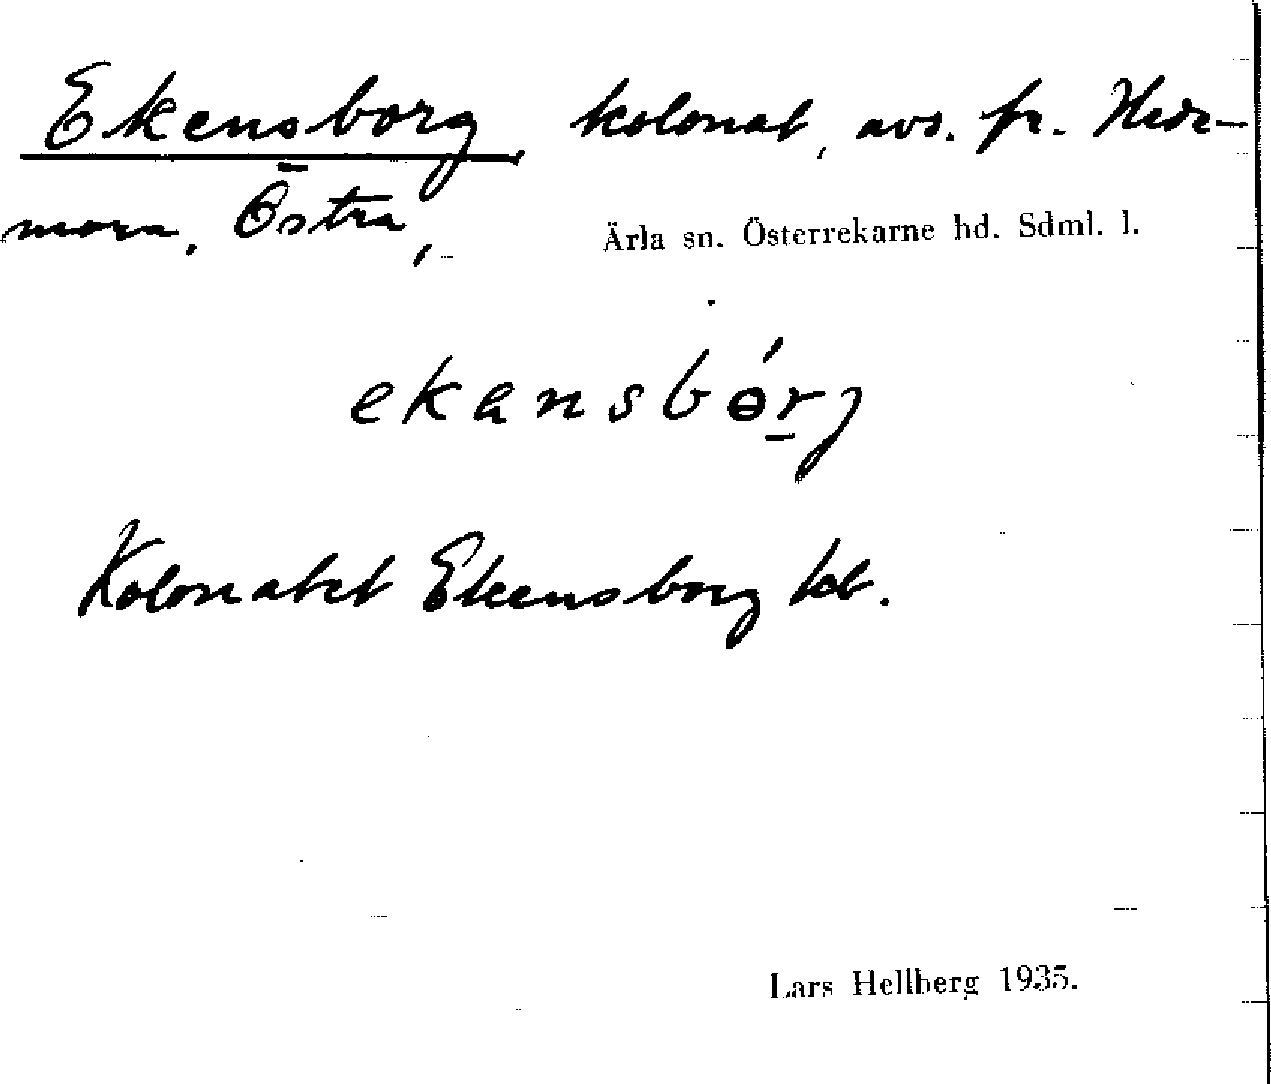 Ekensborg kolonat, avs. fr. Hede-
mora, Östra,
Ärla sn. Österrekarne hd. Sdml. l.
ekansbɵ́rj
Kolonatet Ekensborg kb.
Lars Hellberg 1935.